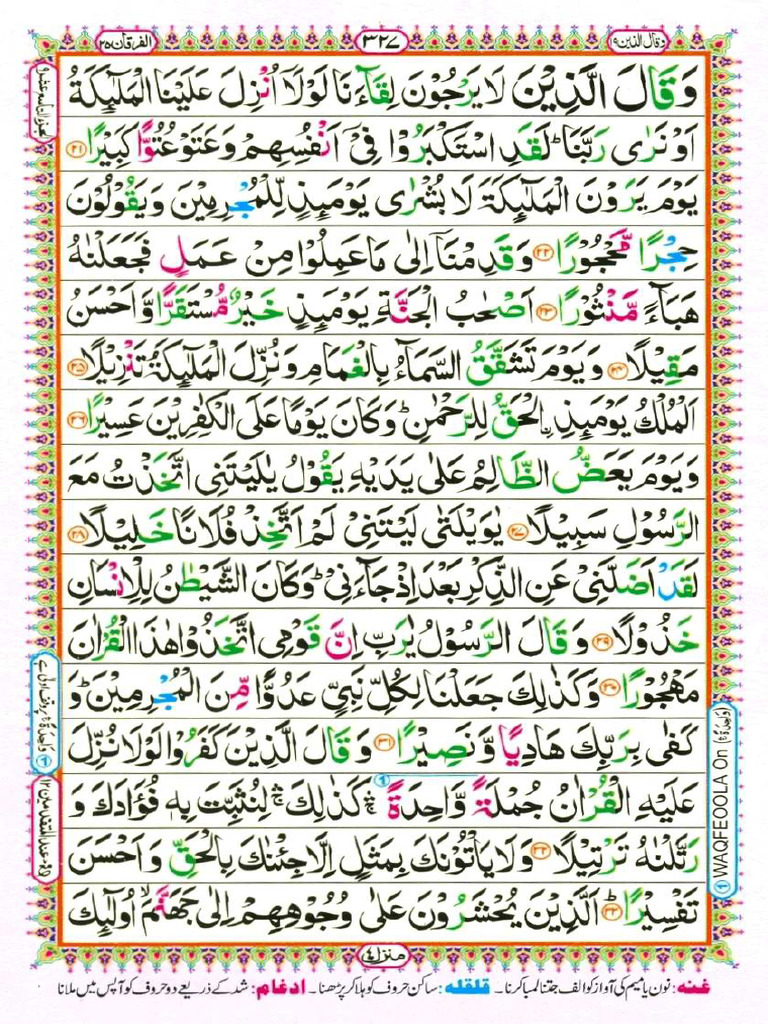 وقال الذين ١٩
٣٢٧
الفرقان ٢٥
وَقَالَ الَّذِيْنَ لَا يَرْجُوْنَ لِقَآءَنَا لَوْلَاۤ اُنْزِلَ عَلَيْنَا الْمَلٰٓئِكَةُ
اَوْ نَرٰى رَبَّنَا ؕ لَقَدِ اسْتَكْبَرُوْا فِيْۤ اَنْفُسِهِمْ وَعَتَوْ عُتُوًّا كَبِيْرًا ﴿۲۱﴾
يَوْمَ يَرَوْنَ الْمَلٰٓئِكَةَ لَا بُشْرٰى يَوْمَئِذٍ لِّلْمُجْرِمِيْنَ وَيَقُوْلُوْنَ
حِجْرًا مَّحْجُوْرًا ﴿۲۲﴾ وَقَدِمْنَاۤ اِلٰى مَا عَمِلُوْا مِنْ عَمَلٍ فَجَعَلْنٰهُ
هَبَآءً مَّنْثُوْرًا ﴿۲۳﴾ اَصْحٰبُ الْجَنَّةِ يَوْمَئِذٍ خَيْرٌ مُّسْتَقَرًّا وَّاَحْسَنُ
مَقِيْلًا ﴿۲۴﴾ وَيَوْمَ تَشَقَّقُ السَّمَآءُ بِالْغَمَامِ وَنُزِّلَ الْمَلٰٓئِكَةُ تَنْزِيْلًا ﴿۲۵﴾
اَلْمُلْكُ يَوْمَئِذِ ِۨالْحَقُّ لِلرَّحْمٰنِ ؕ وَكَانَ يَوْمًا عَلَى الْكٰفِرِيْنَ عَسِيْرًا ﴿۲۶﴾
وَيَوْمَ يَعَضُّ الظَّالِمُ عَلٰى يَدَيْهِ يَقُوْلُ يٰلَيْتَنِى اتَّخَذْتُ مَعَ
الرَّسُوْلِ سَبِيْلًا ﴿۲۷﴾ يٰوَيْلَتٰى لَيْتَنِيْ لَمْ اَتَّخِذْ فُلَانًا خَلِيْلًا ﴿۲۸﴾
لَقَدْ اَضَلَّنِيْ عَنِ الذِّكْرِ بَعْدَ اِذْ جَآءَنِيْ ؕ وَكَانَ الشَّيْطٰنُ لِلْاِنْسَانِ
خَذُوْلًا ﴿۲۹﴾ وَقَالَ الرَّسُوْلُ يٰرَبِّ اِنَّ قَوْمِى اتَّخَذُوْا هٰذَا الْقُرْاٰنَ
مَهْجُوْرًا ﴿۳۰﴾ وَكَذٰلِكَ جَعَلْنَا لِكُلِّ نَبِيٍّ عَدُوًّا مِّنَ الْمُجْرِمِيْنَ ؕ وَ
كَفٰى بِرَبِّكَ هَادِيًا وَّنَصِيْرًا ﴿۳۱﴾ وَقَالَ الَّذِيْنَ كَفَرُوْا لَوْلَا نُزِّلَ
عَلَيْهِ الْقُرْاٰنُ جُمْلَةً وَّاحِدَةً ۚۛ كَذٰلِكَ ۚۛ لِنُثَبِّتَ بِهٖ فُؤَادَكَ وَ
رَتَّلْنٰهُ تَرْتِيْلًا ﴿۳۲﴾ وَلَا يَاْتُوْنَكَ بِمَثَلٍ اِلَّا جِئْنٰكَ بِالْحَقِّ وَاَحْسَنَ
تَفْسِيْرًا ﴿۳۳﴾ اَلَّذِيْنَ يُحْشَرُوْنَ عَلٰى وُجُوْهِهِمْ اِلٰى جَهَنَّمَ اُولٰٓئِكَ
① WAQFEOOLA On (وَاحِدَةً ۚۛ)
الجزء التاسع عشر
منزل ٤
غنه: نون یا میم کی آواز کو الف جتنا لمبا کرنا۔ قلقله: ساکن حروف کو ہلا کر پڑھنا۔ ادغام: شد کے ذریعے دو حروف کو آپس میں ملانا